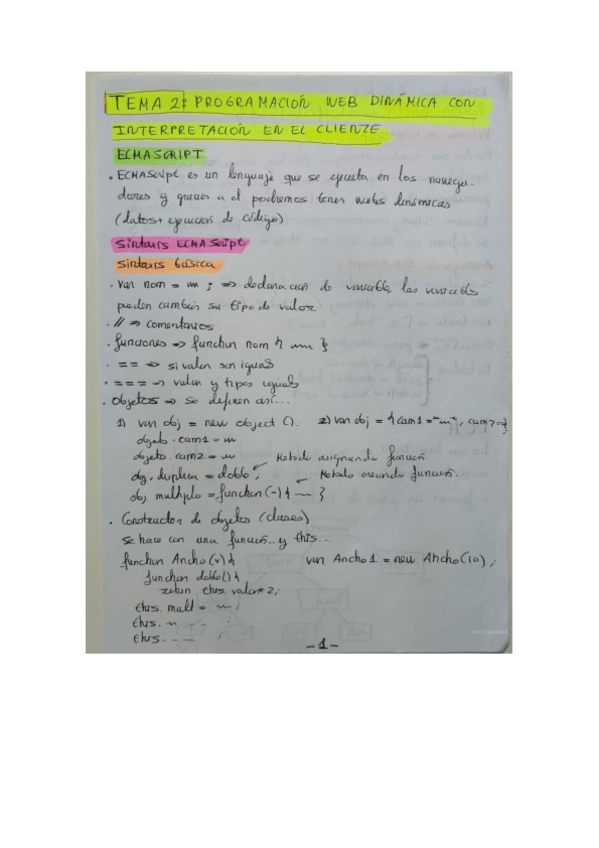 TEMA 2: PROGRAMACIÓN WEB DINÁMICA CON
INTERPRETACIÓN EN EL CLIENTE
ECMASCRIPT
. ECMAScript es un lenguaje que se ejecuta en los navega-
dores y gracias a el podremos tener webs dinámicas
(datos + ejecución de código)
Sintaxis ECMAScript
Sintaxis básica
. var nom = m ; => declaración de variable, las variables
pueden cambiar su tipo de valor
. // => comentarios
. funciones => function nom { m }
. == => si valen son iguals
. === -> valor y tipos iguals
. Objetos => Se definen así...
1) var obj = new object (). 2) var obj = {cam1="m", cam2=
objeto.cam1 = m
objeto.cam2 = m Metodo asignando función
obj.duplica = doble; Metodo creando función.
obj.multiplo = function(~) { ~ }
. Constructor de objetos (clases)
Se hace con una función.. y this...
function Ancho(v) { var Ancho1 = new Ancho(10),
function doble() {
return this.valor*2;
this.mult = ~ ;
this. ~ ;
this. --- ;
- 1 -